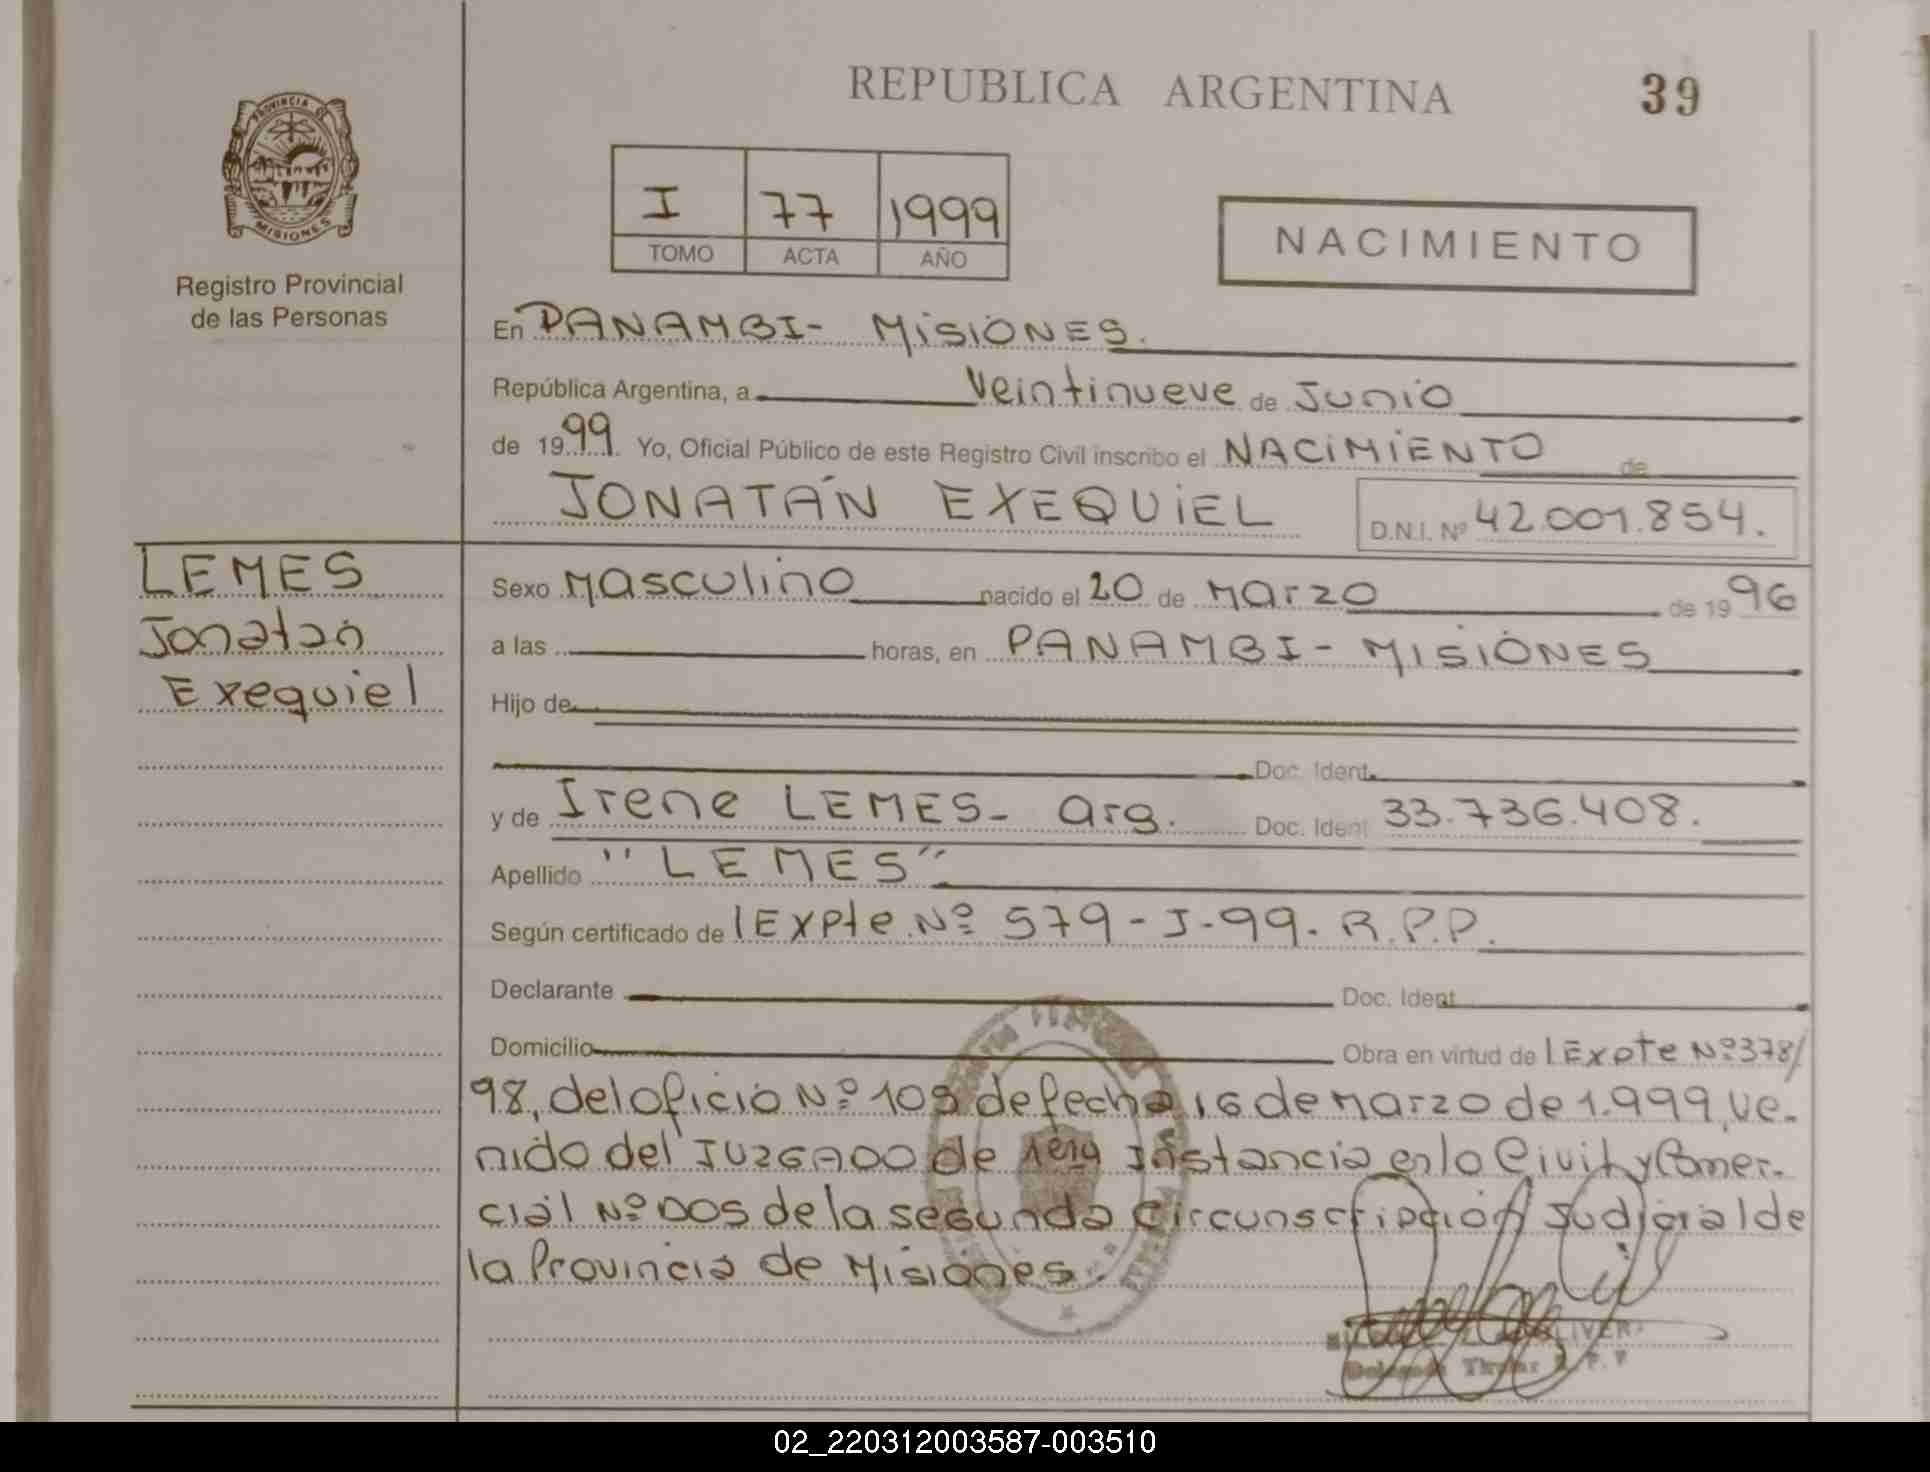 REPUBLICA ARGENTINA
39
PROVINCIA DE
MISIONES
Registro Provincial
de las Personas
I 77 1999
TOMO ACTA AÑO
NACIMIENTO
En PANAMBI- MISIONES.
República Argentina, a Veintinueve de Junio
de 1999. Yo, Oficial Público de este Registro Civil inscribo el NACIMIENTO de
JONATÁN EXEQUIEL D.N.I. Nº 42.001.854.
LEMES
Jonatan
Exequiel
Sexo Masculino nacido el 20 de Marzo de 1996
a las horas, en PANAMBI- MISIONES
Hijo de
Doc. Ident.
y de Irene LEMES- Arg. Doc. Ident 33.736.408.
Apellido "LEMES"
Según certificado de Expte Nº 579-J-99. R.P.P.
Declarante Doc. Ident
Domicilio Obra en virtud de Expte Nº 378/
98, del oficio Nº 109 de fecha 16 de Marzo de 1.999, ve-
nido del JUZGADO de 1era Instancia en lo Civil y Comer-
cial Nº DOS de la segunda Circunscripción Judicial de
la Provincia de Misiones.
02_220312003587-003510